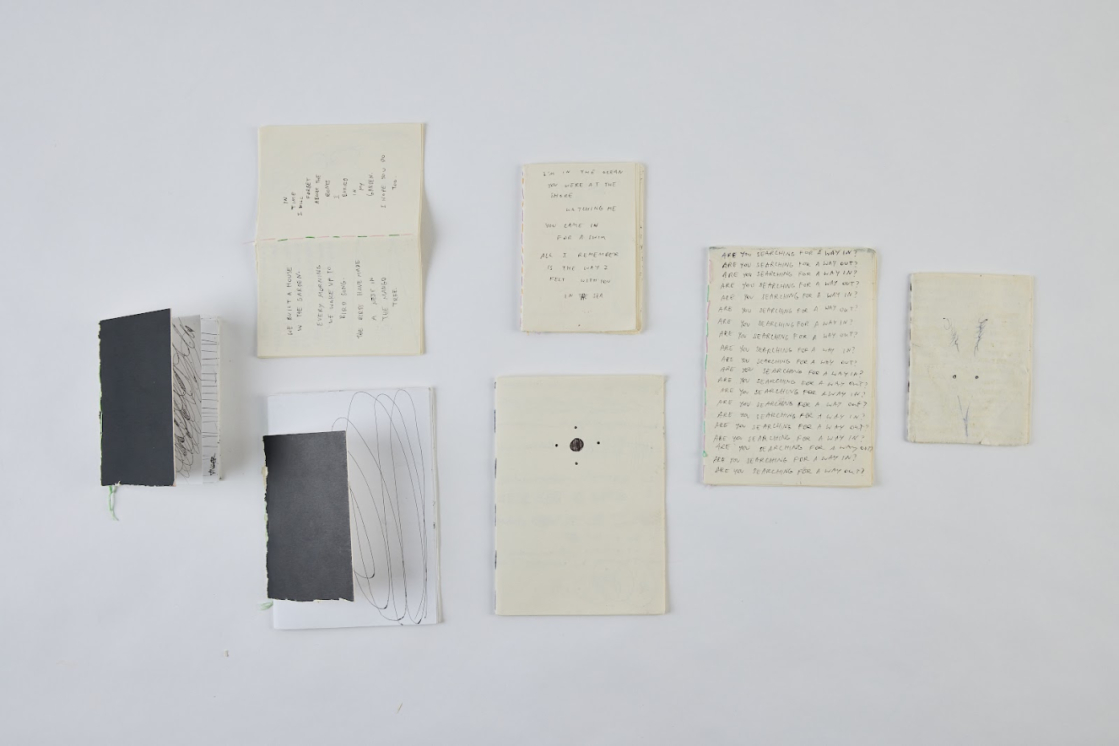 WE BUILT A HOUSE
IN THE GARDEN
EVERY MORNING
WE WAKE UP TO
BIRD SONG
THE BIRDS HAVE MADE
A NEST IN
THE MANGO
TREE
IN
TIME
I WILL
FORGET
ABOUT THE
I
IN
MY
GARDEN
I HOPE YOU DO
TOO
I'M IN THE OCEAN
YOU WERE AT THE
SHORE
WATCHING ME
YOU CAME IN
FOR A SWIM
ALL I REMEMBER
IS THE
FELT WITH YOU
IN
ARE YOU SEARCHING FOR A WAY IN?
ARE YOU SEARCHING FOR A WAY OUT?
ARE YOU SEARCHING FOR A WAY IN?
ARE YOU SEARCHING FOR A WAY OUT?
ARE YOU SEARCHING FOR A WAY IN?
ARE YOU SEARCHING FOR A WAY OUT?
ARE YOU SEARCHING FOR A WAY IN?
ARE YOU SEARCHING FOR A WAY OUT?
ARE YOU SEARCHING FOR A WAY IN?
ARE YOU SEARCHING FOR A WAY OUT?
ARE YOU SEARCHING FOR A WAY IN?
ARE YOU SEARCHING FOR A WAY OUT?
ARE YOU SEARCHING FOR A WAY IN?
ARE YOU SEARCHING FOR A WAY OUT?
ARE YOU SEARCHING FOR A WAY IN?
ARE YOU SEARCHING FOR A WAY OUT?
ARE YOU SEARCHING FOR A WAY IN?
ARE YOU SEARCHING FOR A WAY OUT?
ARE YOU SEARCHING FOR A WAY IN?
ARE YOU SEARCHING FOR A WAY OUT?